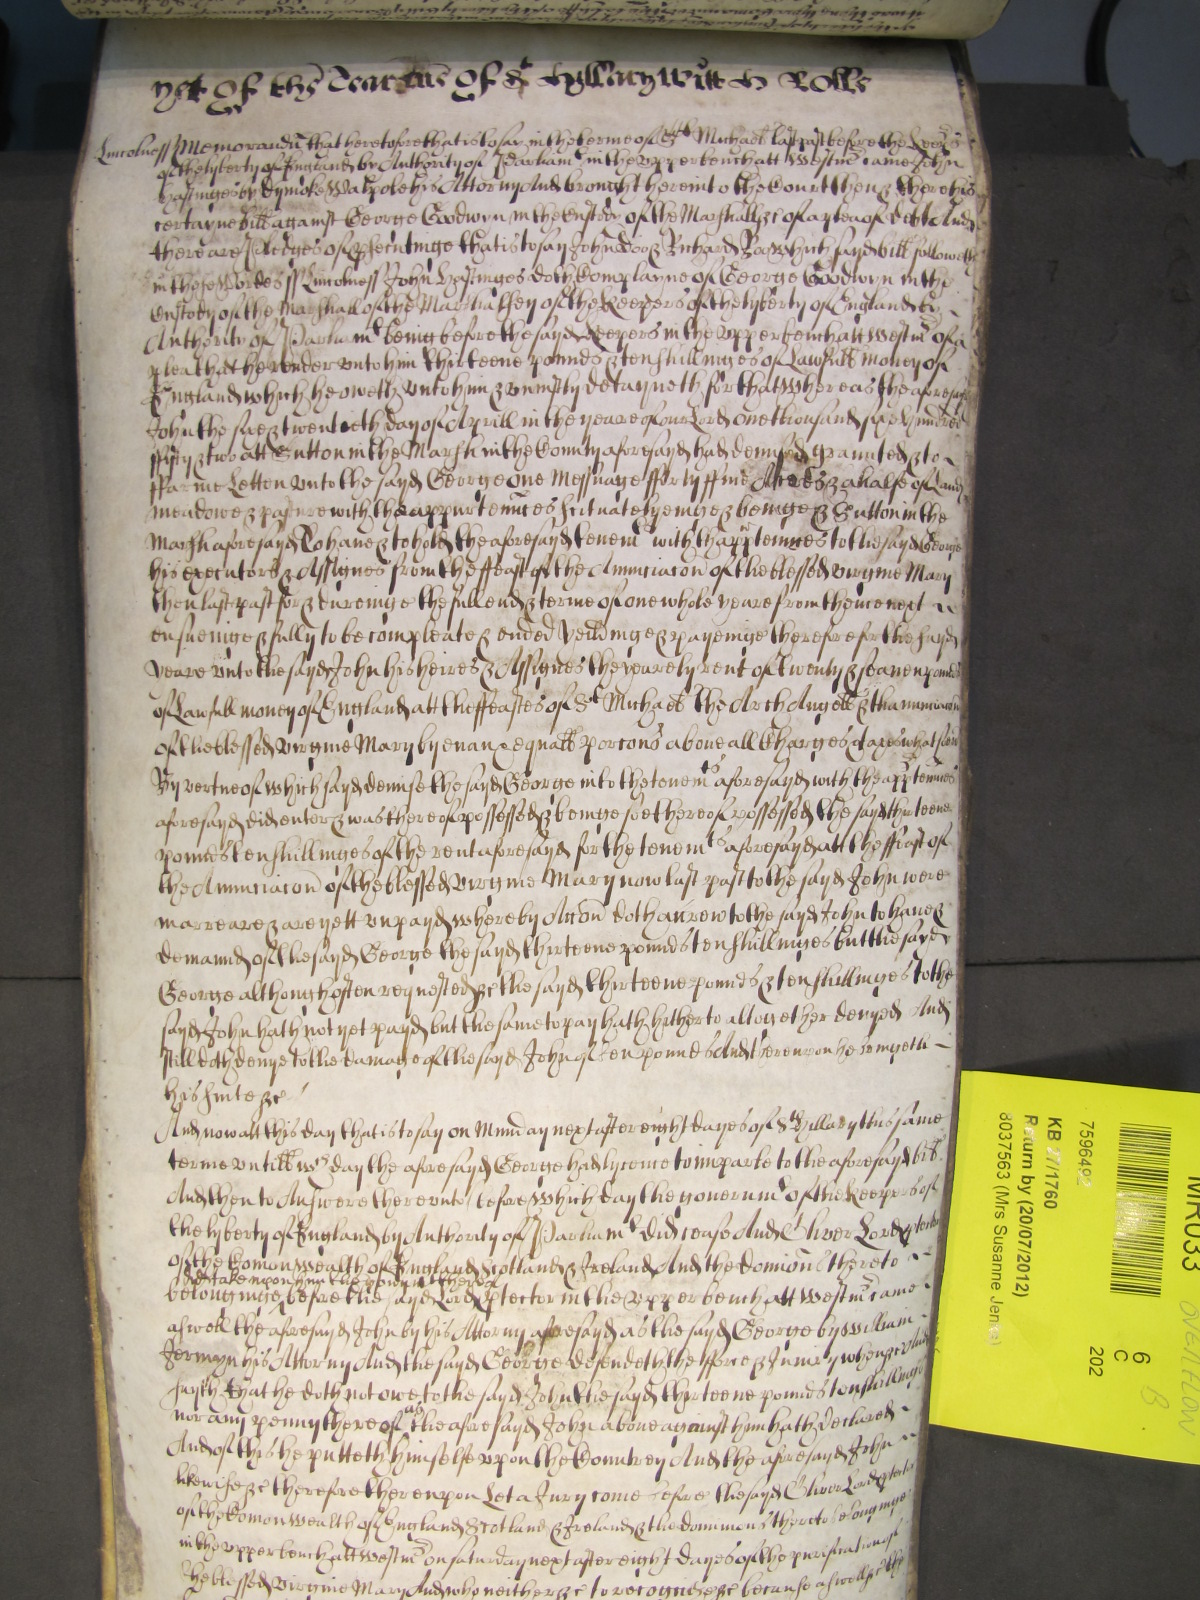 yet Of the Tearme Of St Hyllary Witt Rolls
Lincolness Memorandu that heretofore that is to say in the terme of St Michael last past before the Keeps
of the lyberty of England by Authority of Parliamt in the upper bench att Westmr came John
Hastinges by Dymoke Walpole his Attorny And brought here into the Court then & there his
certayne bill against George Goodwyn in the Custody of the Marshall &c of a plea of debt And
there are Pledges of psecutinge that is to say John Doo & Richard Roo which sayd bill followeth
in these Wordes ss Lincolness John Hastinges doth Complayne of George Goodwyn in the
Custody of the Marshall of the Marshalsey of the Keepers of the lyberty of England by
Authority of Parliamt being before the sayd Keepers in the upper bench att Westmr of a
plea that he render unto him thirteene pounds & ten shillinges of Lawfull money of
England which he oweth unto him & uniustly detayneth for that Whereas the aforesayd
John the five & twentieth day of Aprill in the yeare of our Lord one thousand six hundred
fifty & two att Sutton in the Marsh in the County aforesayd had demised graunted & to
ffarme Letten unto the sayd George one Messuage fforty ffive Acres & a halfe of Land
meadowe & pasture with thappurtennces scituate lyeinge & beinge in Sutton in the
Marsh aforesayd To have & to hold the aforesayd tenemts with thapptennces to the sayd George
his executors & Assignes from the ffeast of the Annuciacon of the blessed virgine Mary
then last past for & dureinge the full end & terme of one whole yeare from thence next
ensueinge & fully to be compleate & ended yeildinge & payeinge therefore for the sayd
yeare unto the sayd John his heires & Assignes the yearely rent of twenty & seaven pounds
of Lawfull money of England att the ffeastes of St Michaell the Arch Angell & thannunciacon
of the blessed virgine Mary by even & equall porcons above all Charges & taxes whatsoever
By vertue of which sayd demise the sayd George into the tenemts aforesayd with thapptennces
aforesayd did enter & was thereof possessed & beinge soe thereof possessed the sayd thirteene
pounds ten shillinges of the rent aforesayd for the tenemts aforesayd att the ffeast of
the Annuciacon of the blessed virgine Mary now last past to the sayd John were
in arreare & are yett unpayd whereby Accon doth accrew to the sayd John to have &
demaund of the sayd George the sayd thirteene pounds ten shillinges but the sayd
George although often requested &c the sayd thirteene pounds & ten shillinges to the
sayd John hath not yet payd but the same to pay hath hitherto altogether denyed And
still doth denye to the damage of the sayd John of ten pounds And thereupon he bringeth
his suite &c
And now att this day that is to say on Munday next after eight dayes of St Hillary this same
terme untill wch day the aforesayd George had lycence to imparle to the aforesayd bill
And then to Answere thereunto before Which day the govermt of the Keepers of
the lyberty of England by Authority of Parliamt did cease And Oliver Lord ptector
of the Comonwealth of England Scotland & Ireland And the Dominions thereto
did take upon him the govermt thereof
belonginge before the sayd Lord ptector in the upper bench att Westmr came
aswell the aforesayd John by his Attorny aforesayd as the sayd George by William
Jermyn his Attorny And the sayd George defendeth the fforce & Iniury when &c And
sayth that he doth not owe to the sayd John the sayd thirteene pounds ten shillinges
nor any penny thereof as the aforesayd John above against him hath declared
And of this he putteth himselfe upon the Countrey And the aforesayd John
likewise &c therefore thereupon Let a Jury come before the sayd Oliver Lord ptector
of the Comonwealth of England Scotland & Ireland & the dominions thereto belonginge
in the upper bench att Westmr on Saturday next after eight dayes of the purification of
the blessed virgine Mary And who neither &c to recognise &c because aswell &c the
MR033
759649
KB 27/1760
Return by (20/07/2012)
8037563 (Mrs Susanne Jen
6
C
202